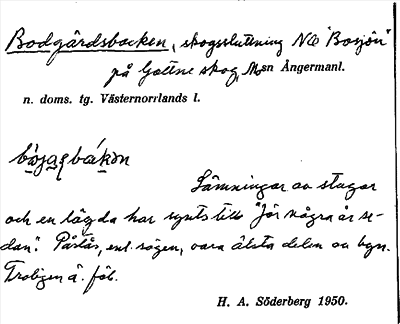 Bodgårdsbacken, skogssluttning NO "Bosjön"
på Gottne skog, Mosn Ångermanl.
n. doms. tg. Västernorrlands l.
Lämningar av stugor
och en lägda har synts till "för några år se-
dan". Påstås, enl. sägen, vara älsta delen av byn.
Troligen ä. fäb.
H. A. Söderberg 1950.